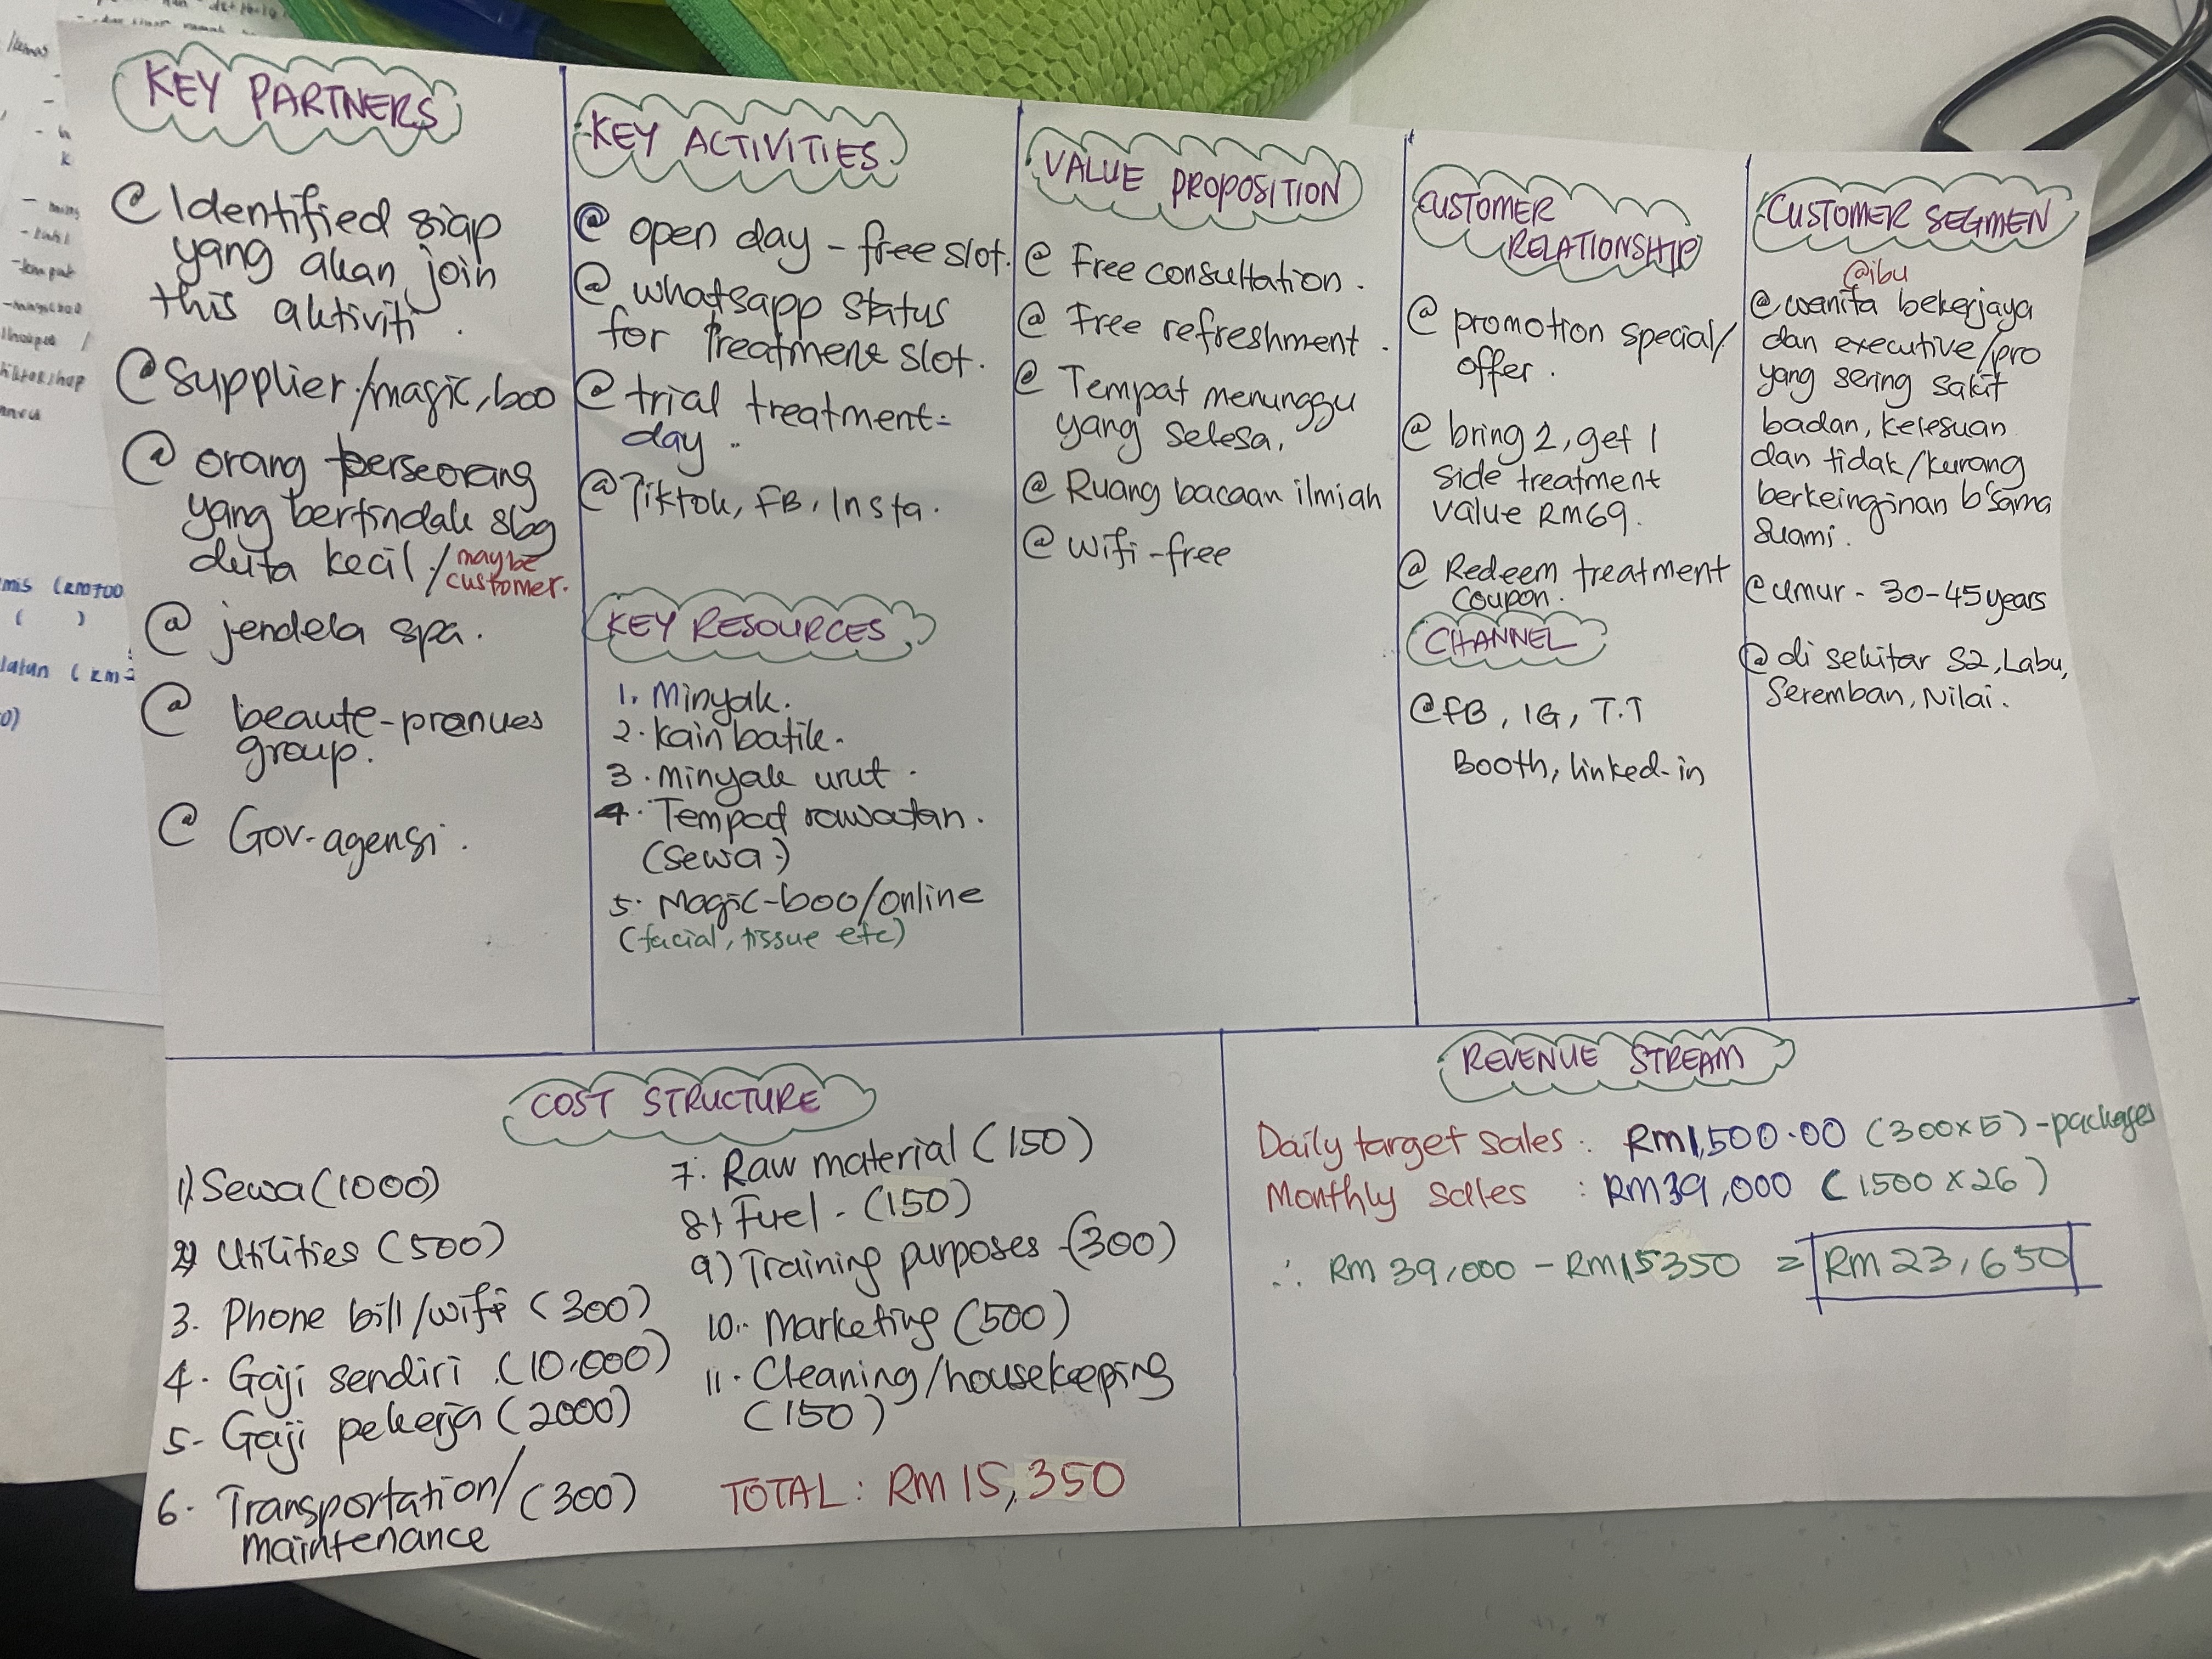 KEY PARTNERS
@ Identified siap
yang akan join
this aktiviti.
@ Supplier./magic, boo
@ orang perseorang
yang bertindak sbg
duta kecil / maybe
customer.
@ jendela spa.
@ beaute-pranues
group.
@ Gov-agensi.
KEY ACTIVITIES
@ open day - free slot.
@ whatsapp status
for Treatment slot.
@ trial treatment-
day.
@ Tiktok, FB, Insta.
KEY RESOURCES
1. Minyak.
2. Kain batik.
3. Minyak urut.
4. Tempat rawatan.
(sewa.)
5. Magic-boo/online
(facial, tissue etc)
VALUE PROPOSITION
@ Free consultation.
@ Free refreshment.
@ Tempat menunggu
yang selesa.
@ Ruang bacaan ilmiah
@ wifi-free
CUSTOMER
RELATIONSHIP
@ promotion special/
offer.
@ bring 2, get 1
side treatment
value RM69.
@ Redeem treatment
coupon.
CHANNEL
@ FB, IG, T.T
Booth, linked-in
CUSTOMER SEGMEN
@ibu
@ wanita bekerjaya
dan executive/pro
yang sering sakit
badan, kelesuan
dan tidak/kurang
berkeinginan b'sama
suami.
@ umur - 30-45 years
@ di sekitar S2, Labu,
Seremban, Nilai.
COST STRUCTURE
1) Sewa (1000)
2) Utilities (500)
3. Phone bill/wifi (300)
4. Gaji sendiri (10,000)
5- Gaji pekerja (2000)
6. Transportation/ (300)
maintenance
7. Raw material (150)
8) Fuel - (150)
9) Training purposes - (300)
10. Marketing (500)
11. Cleaning/housekeeping
(150)
TOTAL: RM 15,350
REVENUE STREAM
Daily target sales : RM1,500.00 (300x5) - packages
Monthly sales : RM39,000 (1500 x 26)
∴ RM 39,000 - RM15350 = RM 23,650